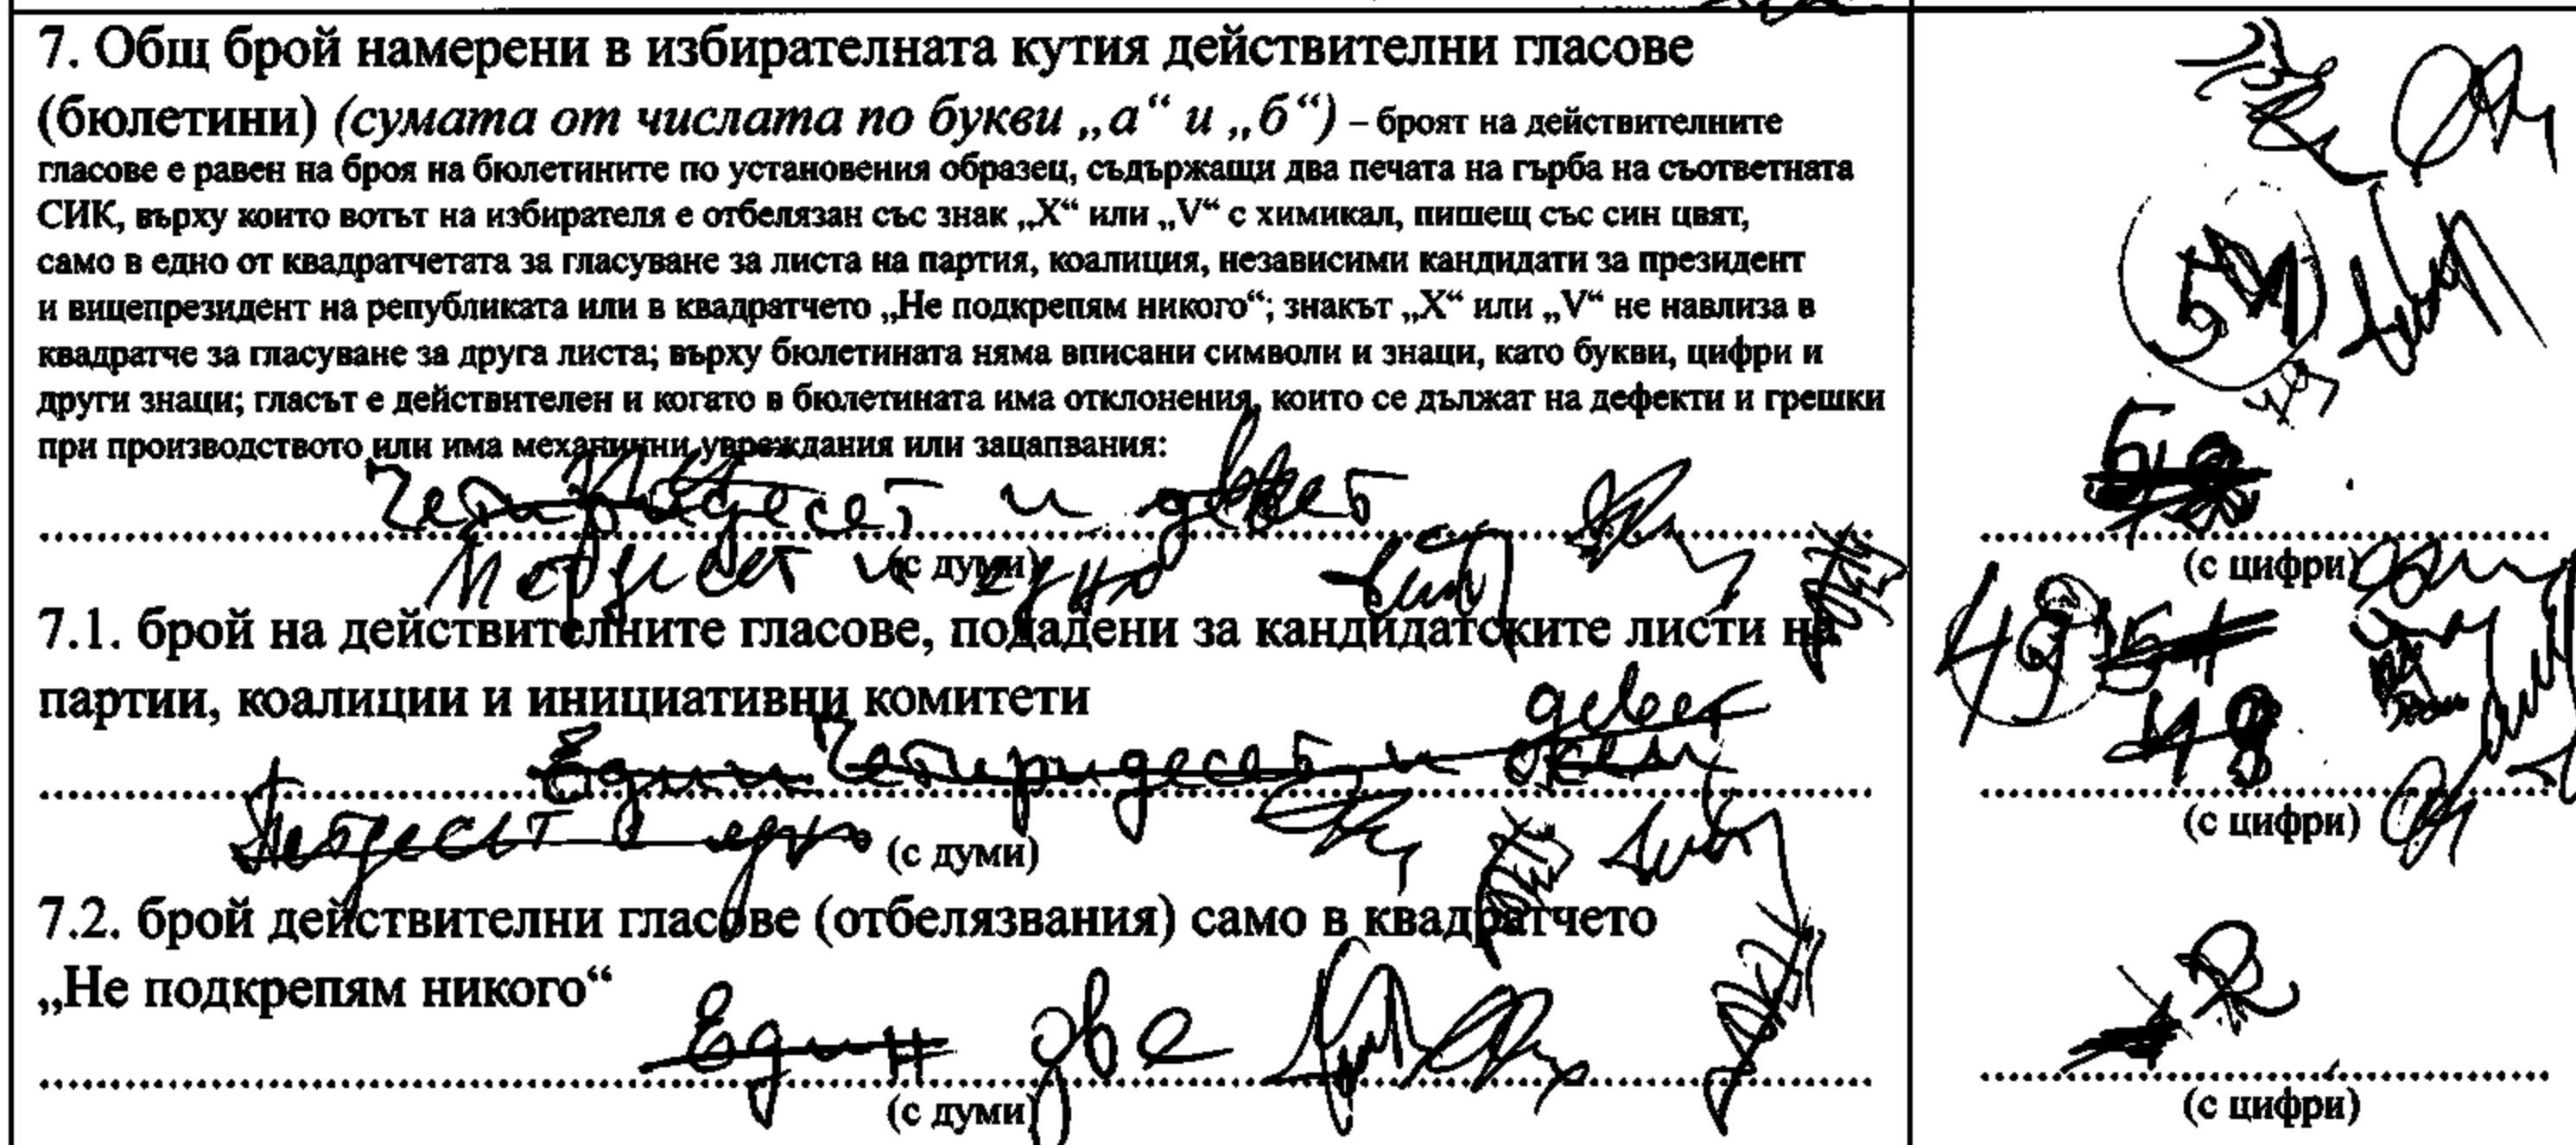 7. Общ брой намерени в избирателната кутия действителни гласове
(бюлетини) (сумата от числата по букви „а“ и „б“) – броят на действителните
гласове е равен на броя на бюлетините по установения образец, съдържащи два печата на гърба на съответната
СИК, върху които вотът на избирателя е отбелязан със знак „X“ или „V“ с химикал, пишещ със син цвят,
само в едно от квадратчетата за гласуване за листа на партия, коалиция, независими кандидати за президент
и вицепрезидент на републиката или в квадратчето „Не подкрепям никого“; знакът „X“ или „V“ не навлиза в
квадратче за гласуване за друга листа; върху бюлетината няма вписани символи и знаци, като букви, цифри и
други знаци; гласът е действителен и когато в бюлетината има отклонения, които се дължат на дефекти и грешки
при производството или има механични увреждания или зацапвания:
51
Четиридесет и девет
Педесет и едно
(с думи)
(с цифри)
7.1. брой на действителните гласове, подадени за кандидатските листи на
партии, коалиции и инициативни комитети
49 51
48
девет
Един Четиридесет и осем
Петдесет и едно (с думи)
(с цифри)
7.2. брой действителни гласове (отбелязвания) само в квадратчето
„Не подкрепям никого“
Един две
2
(с думи)
(с цифри)